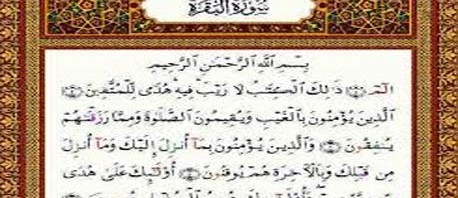 سورة البقرة
بِسْمِ اللَّهِ الرَّحْمَٰنِ الرَّحِيمِ
الٓمٓ ۝ ذَٰلِكَ الْكِتَٰبُ لَا رَيْبَ فِيهِ هُدًى لِّلْمُتَّقِينَ ۝
الَّذِينَ يُؤْمِنُونَ بِالْغَيْبِ وَيُقِيمُونَ الصَّلَوٰةَ وَمِمَّا رَزَقْنَٰهُمْ
يُنفِقُونَ ۝ وَالَّذِينَ يُؤْمِنُونَ بِمَآ أُنزِلَ إِلَيْكَ وَمَآ أُنزِلَ
مِن قَبْلِكَ وَبِالْآخِرَةِ هُمْ يُوقِنُونَ ۝ أُوْلَٰٓئِكَ عَلَىٰ هُدًى